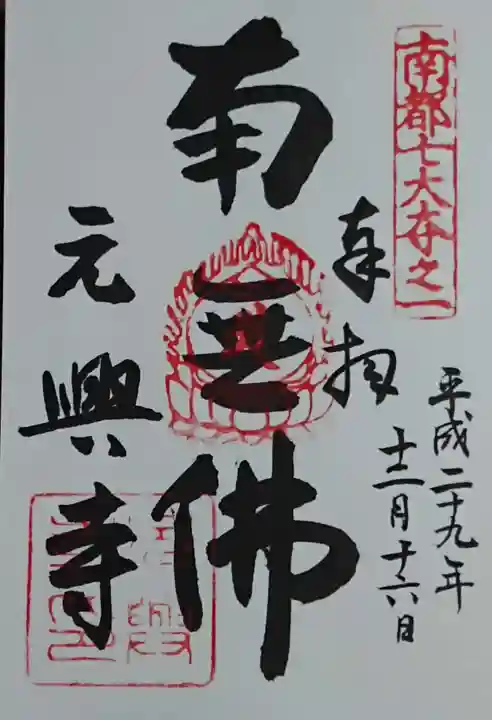 南都七大寺之一
奉拝
平成二十九年
十二月十六日
南無佛
元興寺